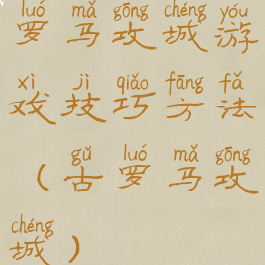 luó mǎ gōng chéng yóu
罗马攻城游
xì jì qiǎo fāng fǎ
戏技巧方法
gǔ luó mǎ gōng
（古罗马攻
chéng
城）